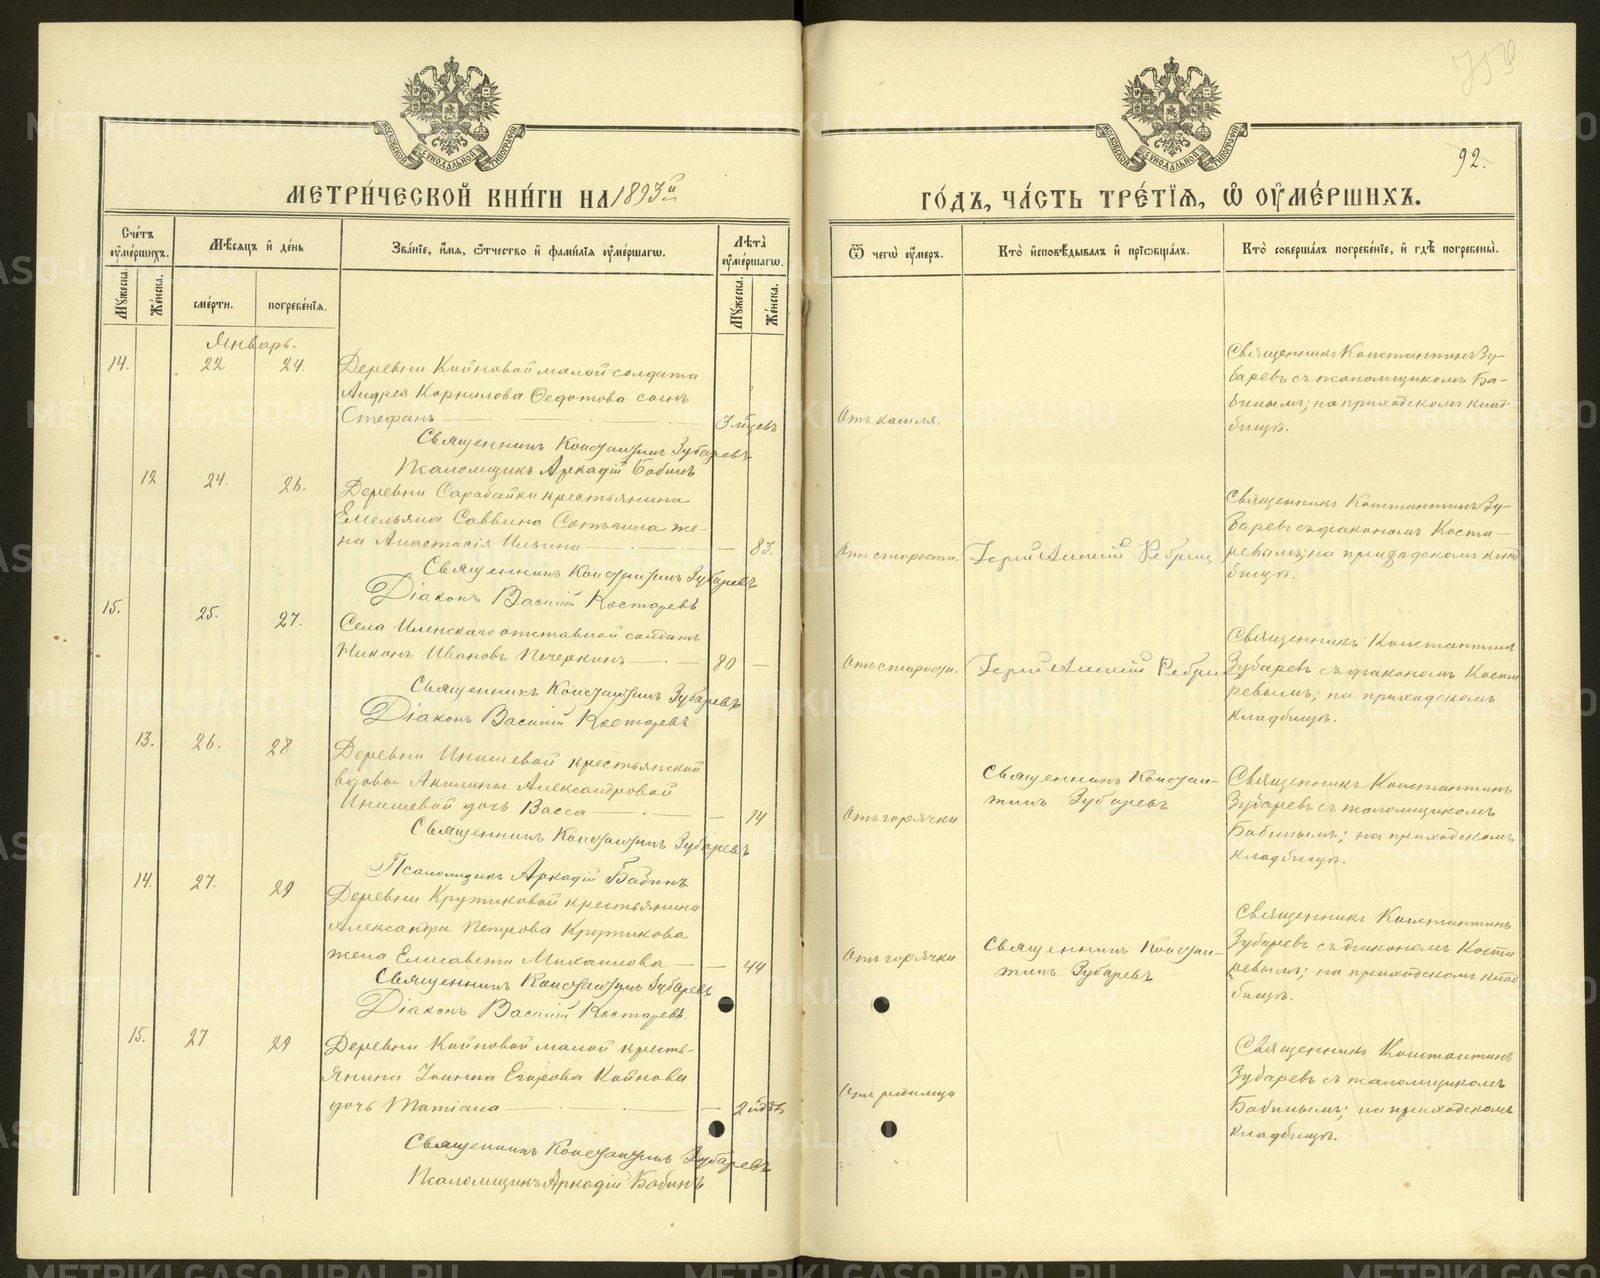 МЕТРИ́ЧЕСКОЙ КНИ́ГИ НА 1893й
ГО́ДЪ, ЧА́СТЬ ТРЕ́ТЇѦ, Ѡ҆ ОУ҆МЕ́РШИХЪ.
92.
МОСКОВСКОЙ СУНОДАЛЬНОЙ ТИПОГРАФІИ
МОСКОВСКОЙ СУНОДАЛЬНОЙ ТИПОГРАФІИ
Сче́тъ оу҆ме́ршихъ.
Мѣ́сѧцъ и҆ де́нь
Зва́нїе, и҆́мѧ, ѻ҆́тчество и҆ фами́лїѧ оу҆ме́ршагѡ.
Лѣ̀та оу҆ме́ршагѡ.
Ѿ чегѡ̀ оу҆́меръ.
Кто̀ и҆сповѣ́дывалъ и҆ прїѡбща́лъ.
Кто̀ соверша́лъ погребе́нїе, и҆ гдѣ̀ погребены̀.
Мꙋ́жеска.
Же́нска.
сме́рти.
погребе́нїѧ.
Мꙋ́жеска.
Же́нска.
Январь.
14.
22
24.
Деревни Койновой малой солдата
Андрея Корнилова Ѳедотова сынъ
Стефанъ
Священникъ Константинъ Зубаревъ
Псаломщикъ Аркадій Бабинъ
Отъ кашля.
Священникъ Константинъ Зу-
баревъ съ псаломщикомъ Ба-
бинымъ; на приходскомъ клад-
бищѣ.
12
24.
26.
Деревни Сарабайки крестьянина
Емельяна Саввина жe-
на Анастасія Ильина
83.
Священникъ Константинъ Зубаревъ
Діаконъ Василій Костаревъ
Отъ старости.
Священникъ Константинъ Зу-
баревъ съ діакономъ Коста-
ревымъ; на приходскомъ клад
бищѣ.
15.
25.
27.
Села Иленскаго отставной солдатъ
Никонъ Ивановъ Печеркинъ
80
Священникъ Константинъ Зубаревъ
Діаконъ Василій Костаревъ
Отъ старости.
Священникъ Константинъ
Зубаревъ съ діакономъ Коста
ревымъ; на приходскомъ
кладбищѣ.
13.
26.
28
Деревни Инишевой крестьянской
вдовы Акилины Александровой
Инишевой дочь Васса
14
Священникъ Константинъ Зубаревъ
Псаломщикъ Аркадій Бабинъ
Отъ горячки
Священникъ Констан-
тинъ Зубаревъ
Священникъ Константинъ
Зубаревъ съ псаломщикомъ
Бабинымъ; на приходскомъ
кладбищѣ.
14.
27.
29
Деревни Крутиковой крестьянина
Александра Петрова Крутикова
жена Елисавета Михаилова
44
Священникъ Константинъ Зубаревъ
Діаконъ Василій Костаревъ.
Отъ горячки
Священникъ Констан-
тинъ Зубаревъ
Священникъ Константинъ
Зубаревъ съ діакономъ Коста
ревымъ; на приходскомъ клад
бищѣ.
15.
27
29
Деревни Койновой малой кресть-
янина Іоанна Егорова Койнова
дочь Татіана
Священникъ Константинъ Зубаревъ
Псаломщикъ Аркадій Бабинъ.
Отъ родимца
Священникъ Константинъ
Зубаревъ съ псаломщикомъ
Бабинымъ; на приходскомъ
кладбищѣ.
METRIKI.GASO-URAL.RU